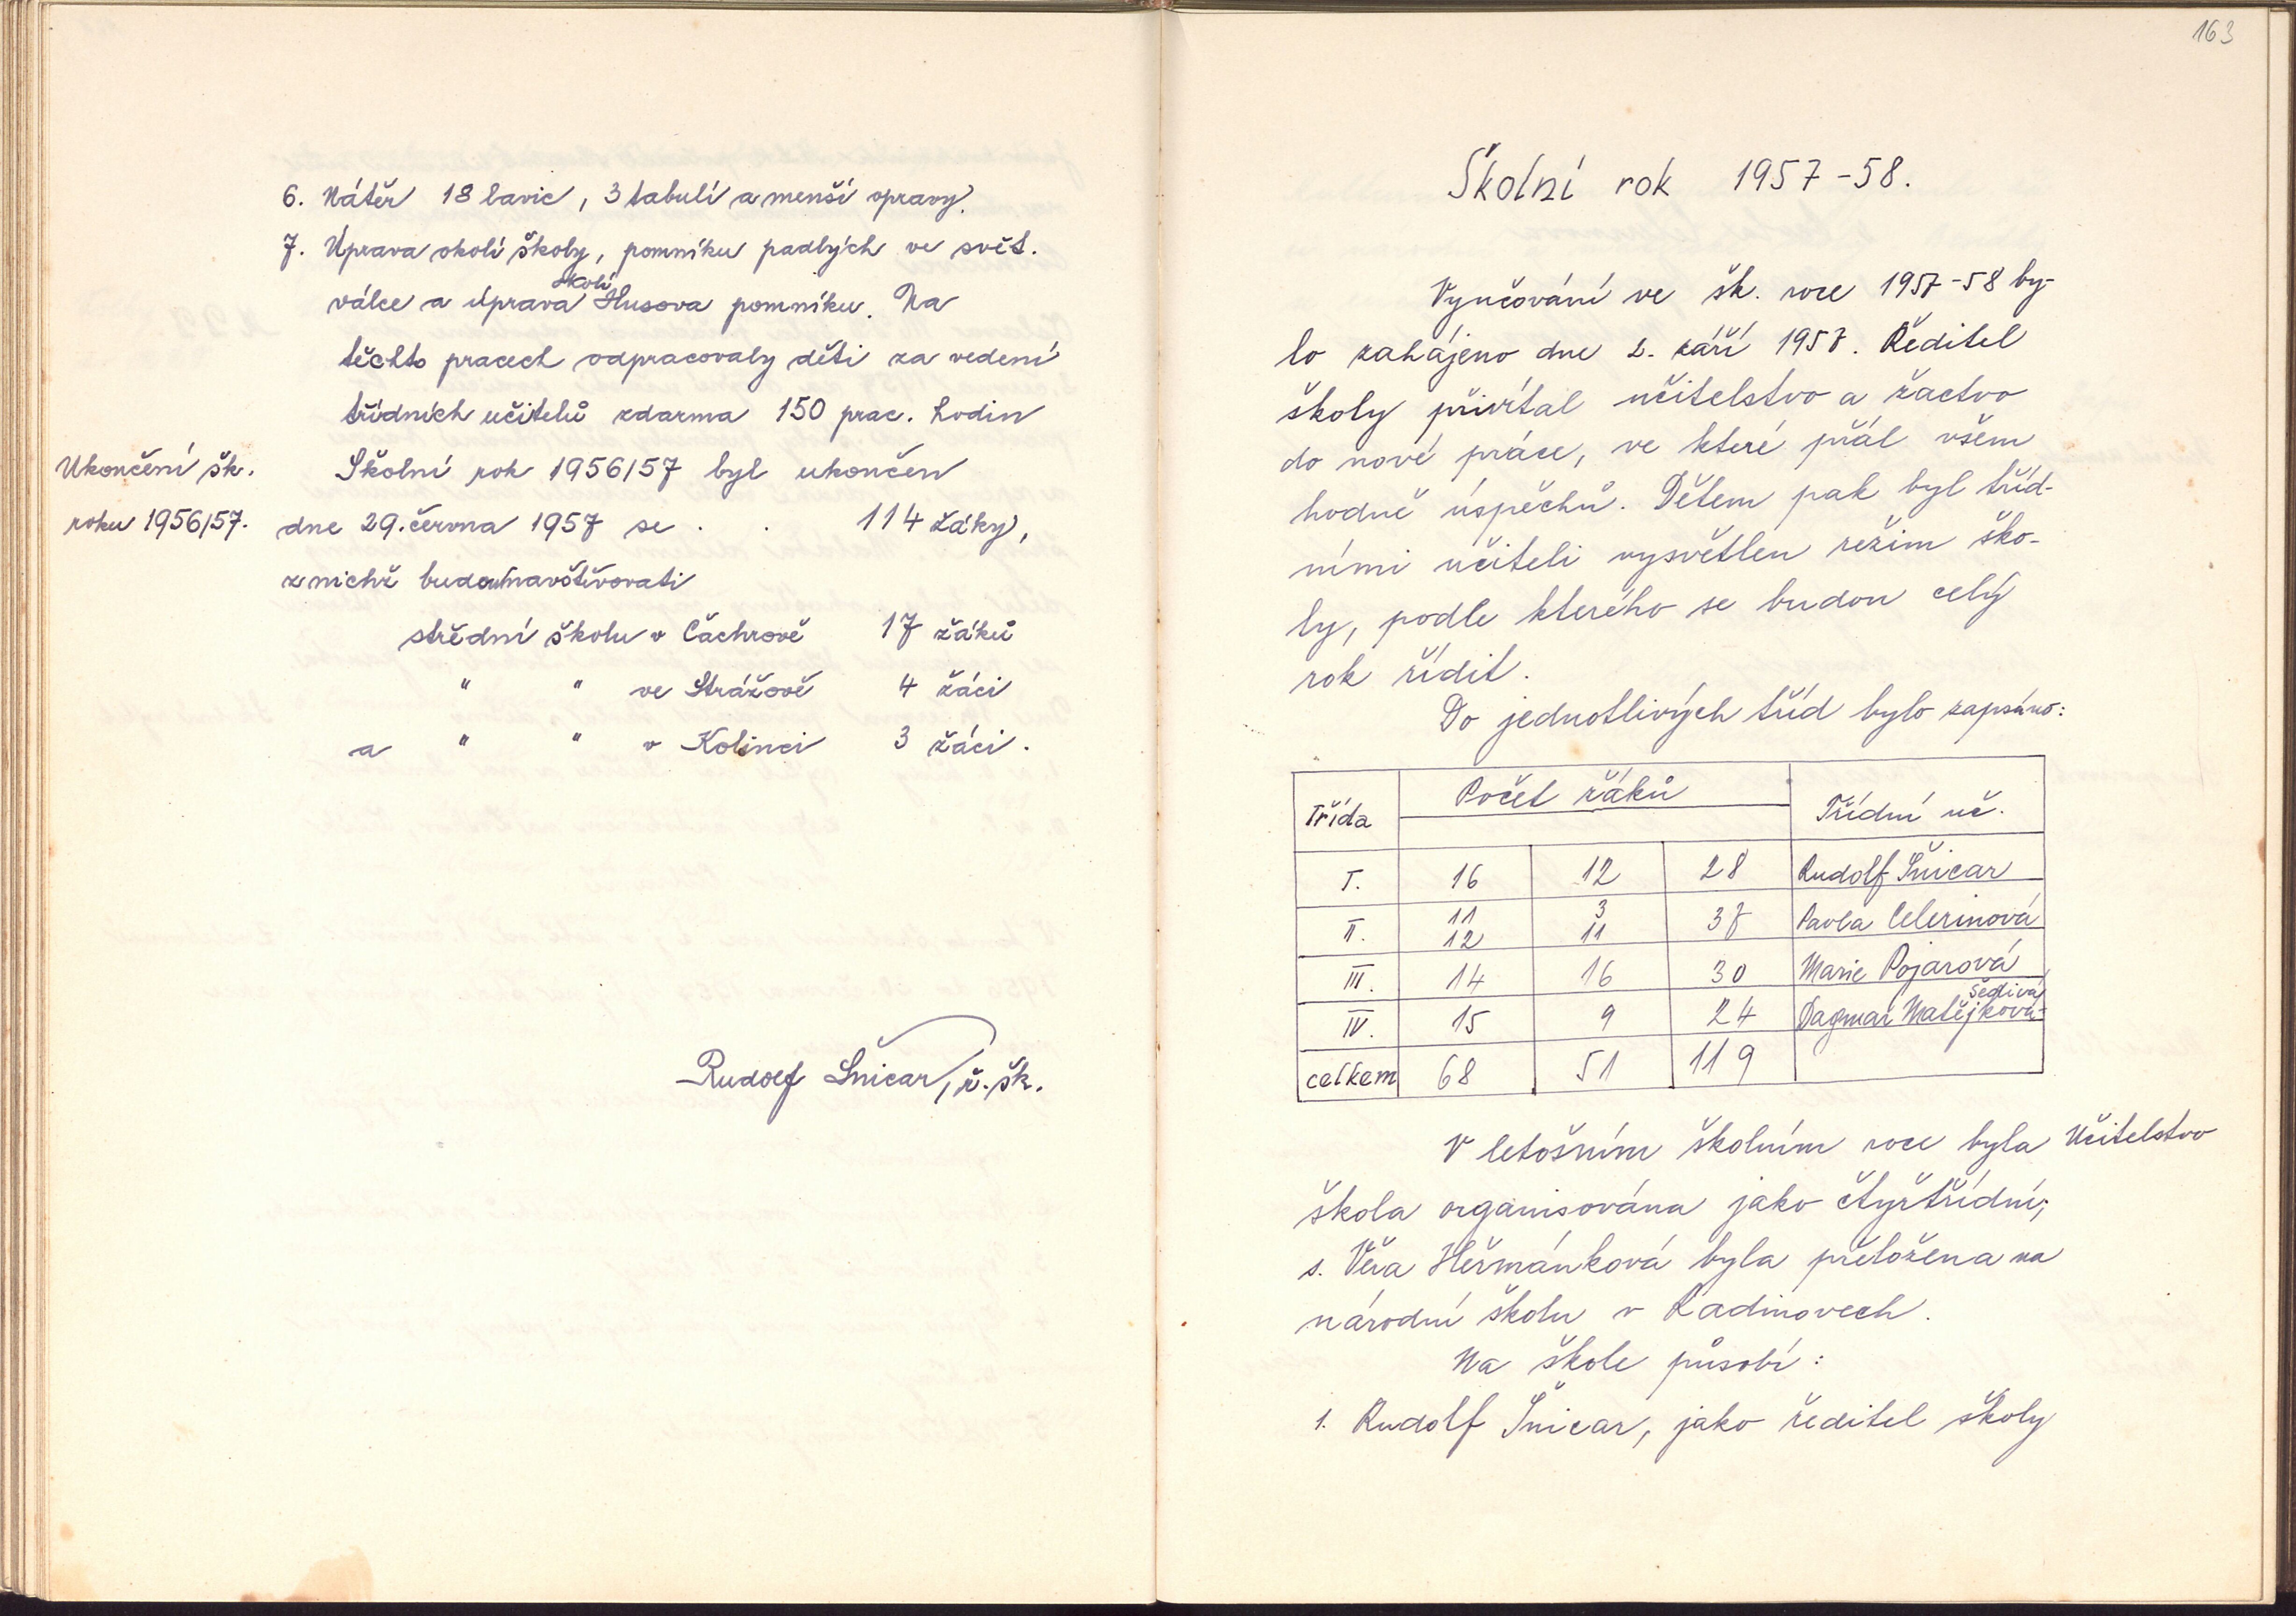 6. Nátěr 18 lavic, 3 tabulí a menší opravy.
7. Úprava okolí školy, pomníku padlých ve svět.
válce a úprava okolí Husova pomníku. Na
těchto pracech odpracovaly děti za vedení
třídních učitelů zdarma 150 prac. hodin
Ukončení šk.
roku 1956/57.
Školní rok 1956/57 byl ukončen
dne 29. června 1957 se . . 114 žáky,
z nichž budou navštěvovati
střední školu v Čachrově 17 žáků
" " ve Strážově 4 žáci
a " " v Kolinci 3 žáci.
Rudolf Šnicar, ř. šk.
163
Školní rok 1957-58.
Vyučování ve šk. roce 1957-58 by-
lo zahájeno dne 2. září 1957. Ředitel
školy přivítal učitelstvo a žactvo
do nové práce, ve které přál všem
hodně úspěchů. Dětem pak byl tříd-
ními učiteli vysvětlen režim ško-
ly, podle kterého se budou celý
rok řídit.
Do jednotlivých tříd bylo zapsáno:
Třída Počet žáků Třídní uč.
I. 16 12 28 Rudolf Šnicar
II. 11 12 3 11 37 Pavla Celerinová
III. 14 16 30 Marie Pojarová
IV. 15 9 24 Dagmar Matějková-Šedivá
celkem 68 51 119
V letošním školním roce byla
Učitelstvo
škola organisována jako čtyřtřídní;
s. Věra Heřmánková byla přeložena na
národní školu v Radinovech.
Na škole působí:
1. Rudolf Šnicar, jako ředitel školy